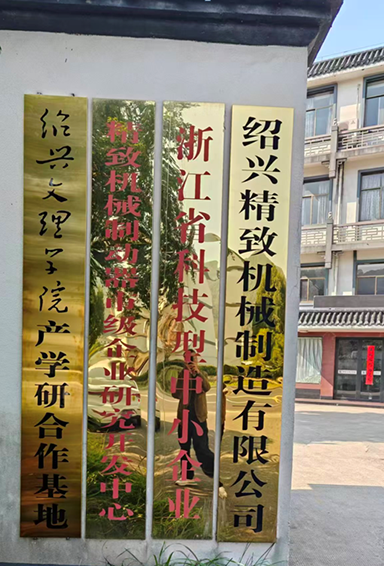 绍兴精致机械制造有限公司
浙江省科技型中小企业
精致机械制动器市级企业研究开发中心
绍兴文理学院产学研合作基地